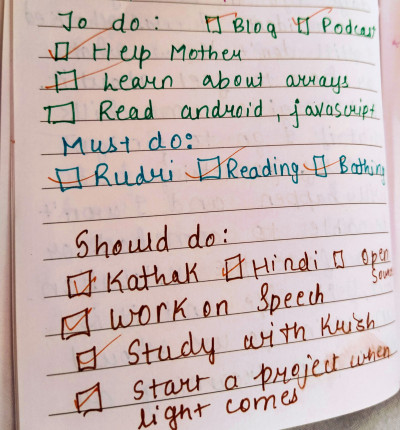 To do: Blog Podcast
Help Mother
Learn about arrays
Read android, javascript
Must do:
Rudri Reading Bathing
Should do:
Kathak Hindi Open
Sound
Work on Speech
Study with Krish
Start a project when
light comes